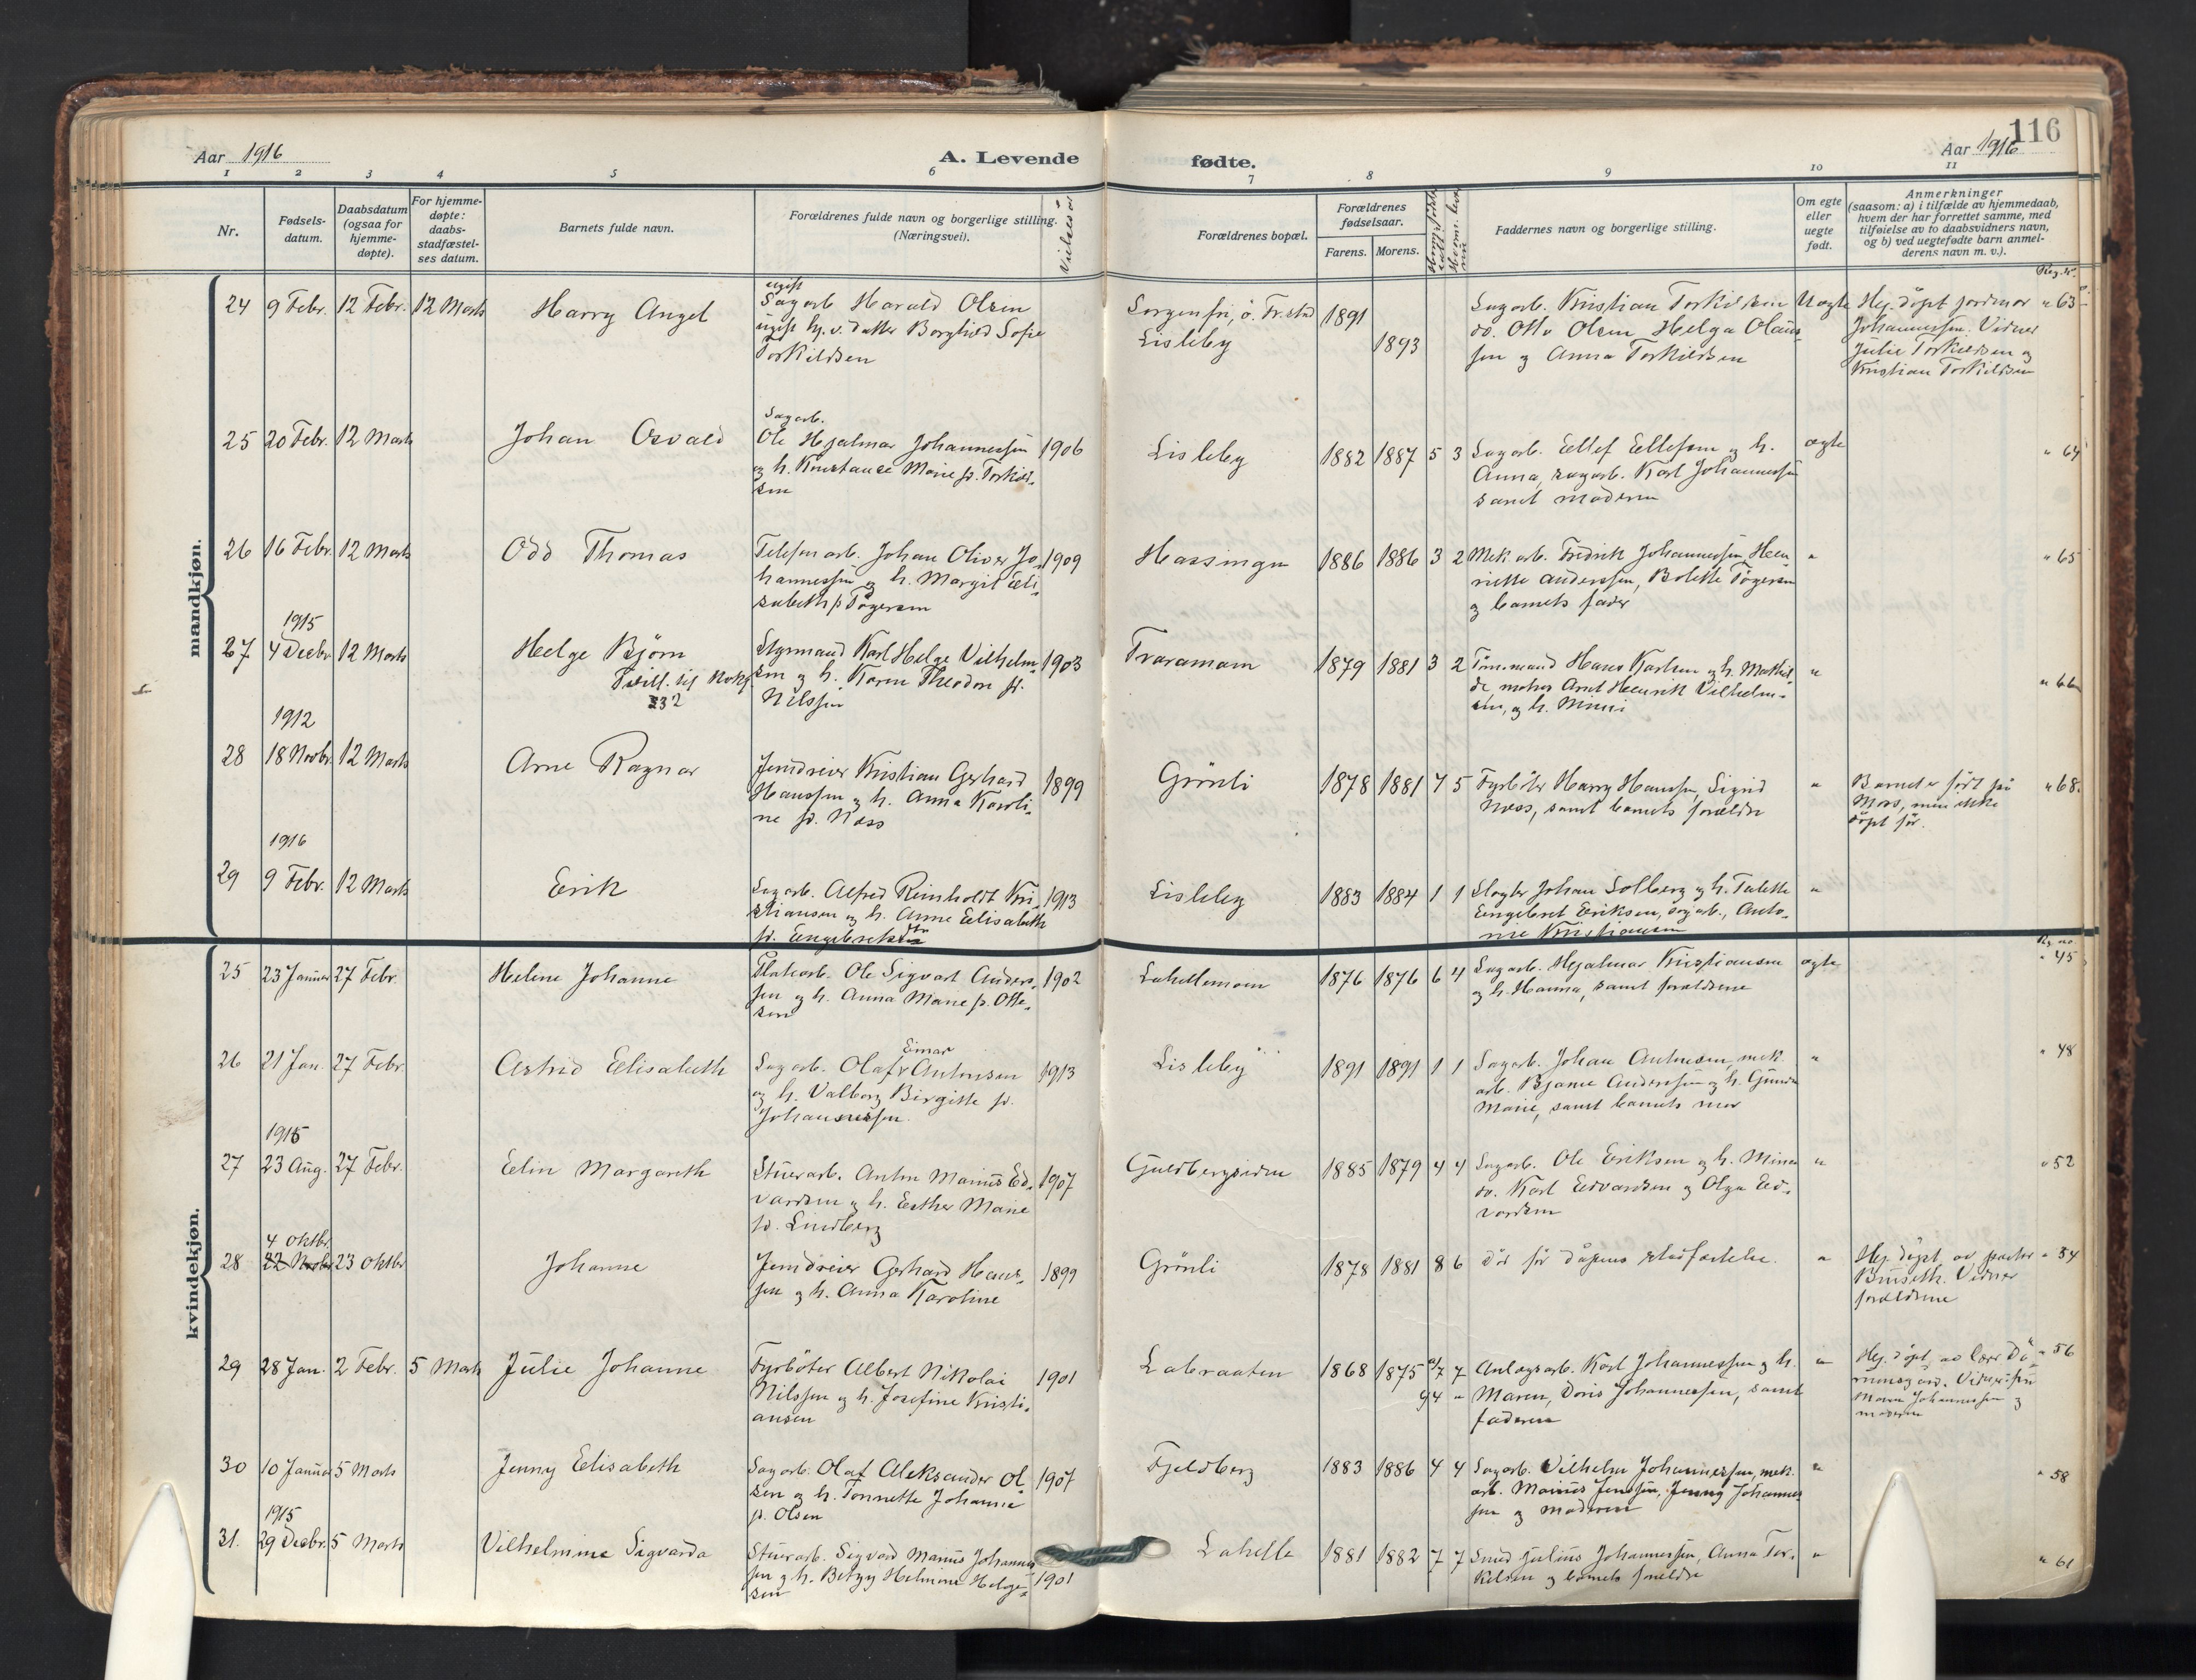 116
Aar 1916
A. Levende
fødte.
Aar 1916
1 2 3 4 5 6 7 8 9 10 11
Nr.
Fødsels-
datum.
Daabsdatum
(ogsaa for
hjemme-
døpte).
For hjemme-
døpte:
daabs-
stadfæstel-
ses datum.
Barnets fulde navn.
Forældrenes fulde navn og borgerlige stilling.
(Næringsvei).
Forældrenes bopæl.
Forældrenes
fødselsaar.
Farens. Morens.
Faddernes navn og borgerlige stilling.
Om egte
eller
uegte
født.
Anmerkninger
(saasom: a) i tilfælde av hjemmedaab,
hvem der har forrettet samme, med
tilføielse av to daabsvidners navn,
og b) ved uegtefødte barn anmel-
derens navn m. v.).
mandkjøn.
24 9 Febr. 12 Febr. 12 Marts Harry Angel
ugift
Sagarb. Harald Olsen
ugift hj.v. datter Borghild Sofie
Torkildsen
Sorgenfri, ö. Fr.stad
Lisleby
1891
1893
Sagarb. Kristian Torkildsen
do. Otto Olsen, Helga Olaus-
sen og Anna Torkildsen
Uægte
Hj. döpt jordmor
Johannessen. Vidner
Julie Torkildsen og
Kristian Torkildsen
" 63
25 20 Febr. 12 Marts Johan Osvald
Sagarb.
Ole Hjalmar Johannessen
og h. Konstanse Marie f. Torkild-
sen
1906
Lisleby
1882 1887 5 3
Sagarb. Ellef Ellefsen og h.
Anna, sagarb. Karl Johannessen
samt moderen
ægte
" 64
26 16 Febr. 12 Marts Odd Thomas
Telefonarb. Johan Oliver Jo-
hannessen og h. Margit Eli-
sabeth f. Tögersen
1909
Hassingen
1886 1886 3 2
Mek.arb. Fredrik Johannessen, Hen-
riette Anderssen, Bolette Tögersen
og barnets fader
"
" 65
1915
27 4 Decbr. 12 Marts Helge Bjørn
232
Styrmand Karl Helge Vilhelm-
sen og h. Karen Theodora f.
Nilssen
1903
Traramoen
1879 1881 3 2
Tømmermand Hans Karlsen og h. Mathil-
de, Arnt Henrik Vilhelm-
sen, og h. Minni
"
" 66
1912
28 18 Novbr. 12 Marts Arne Ragnar
Jerndreier Kristian Gerhard
Hanssen og h. Anna Karoli-
ne f. Næss
1899
Grönli
1878 1881 7 5
Fyrböter Harry Hanssen, Sigrid
Næss, samt barnets forældre
"
Barnet er født på
Moss, men ikke
döpt før.
" 68.
1916
29 9 Febr. 12 Marts Erik
Sagarb. Alfred Reinholdt Kri-
stiansen og h. Anne Elisabeth
f. Engebretsen
1913
Lisleby
1883 1884 1 1
Slagter Johan Solberg og h. Talette
Engebret Eriksen, sagarb., Anto-
nie Kristiansen
"
kvindekjøn.
25 23 Januar 27 Febr. Helene Johanne
Platearb. Ole Sigvart Anders-
sen og h. Anna Marie f. Otte-
sen
1902
Lahellemoen
1876 1876 6 4
Sagarb. Hjalmar Kristiansen
og h. Hanna, samt forældrene
ægte
" 45
26 21 Jan. 27 Febr. Astrid Elisabeth
Einar
Sagarb. Olaf Antonsen
og h. Valborg Birgitte f.
Johannessen.
1913
Lisleby
1891 1891 1 1
Sagarb. Johan Antonsen, mek.
arb. Bjarne Anderssen og h. Gunda
Marie, samt barnets mor
"
" 48
1915
27 23 Aug. 27 Febr. Elin Margareth
Stuerarb. Anton Marius Ed-
vardsen og h. Esther Marie
f. Lindberg
1907
Guldbergsiden
1885 1879 4 4
Sagarb. Ole Eriksen og h. Mina
do. Karl Edvardsen og Olga Ed-
vardsen
"
" 52
4 Oktbr.
28 22 Novbr. 23 Oktbr. Johanne
Jerndreier Gerhard Hans-
sen og h. Anna Karoline
1899
Grönli
1878 1881 8 6
Dör för dåpens stadfæstelse.
"
Hj. döpt av pastor
Bruseth. Vidner
forældrene
" 34
29 28 Jan. 2 Febr. 5 Marts Julie Johanne
Fyrböter Albert Nikolai
Nilssen og h. Josefine Kristi-
ansen
1901
Labraaten
1868 1875
Anlægsarb. Karl Johannessen og h.
Maren, Doris Johannessen, samt
faderen
"
Maren Johannessen og
moderen
" 56
30 10 Januar 5 Marts Jenny Elisabeth
Sagarb. Olaf Aleksander Ol-
sen og h. Tonnette Johanne
f. Olsen
1907
Fjeldberg
1883 1886 4 4
Sagarb. Vilhelm Johannessen, mek.
arb. Marius Jenssen, Jenny Johannes-
sen og moderen
"
" 58
1915
31. 29 Decbr. 5 Marts Vilhelmine Sigvarda
Stuerarb. Sigvard Marius Johannes-
sen og h. Betzy Helmine Helge-
sen
1901
Lahelle
1881 1882 7 7
Smed Julius Johannessen, Anna Tor-
kelsen og barnets forældre
"
" 61